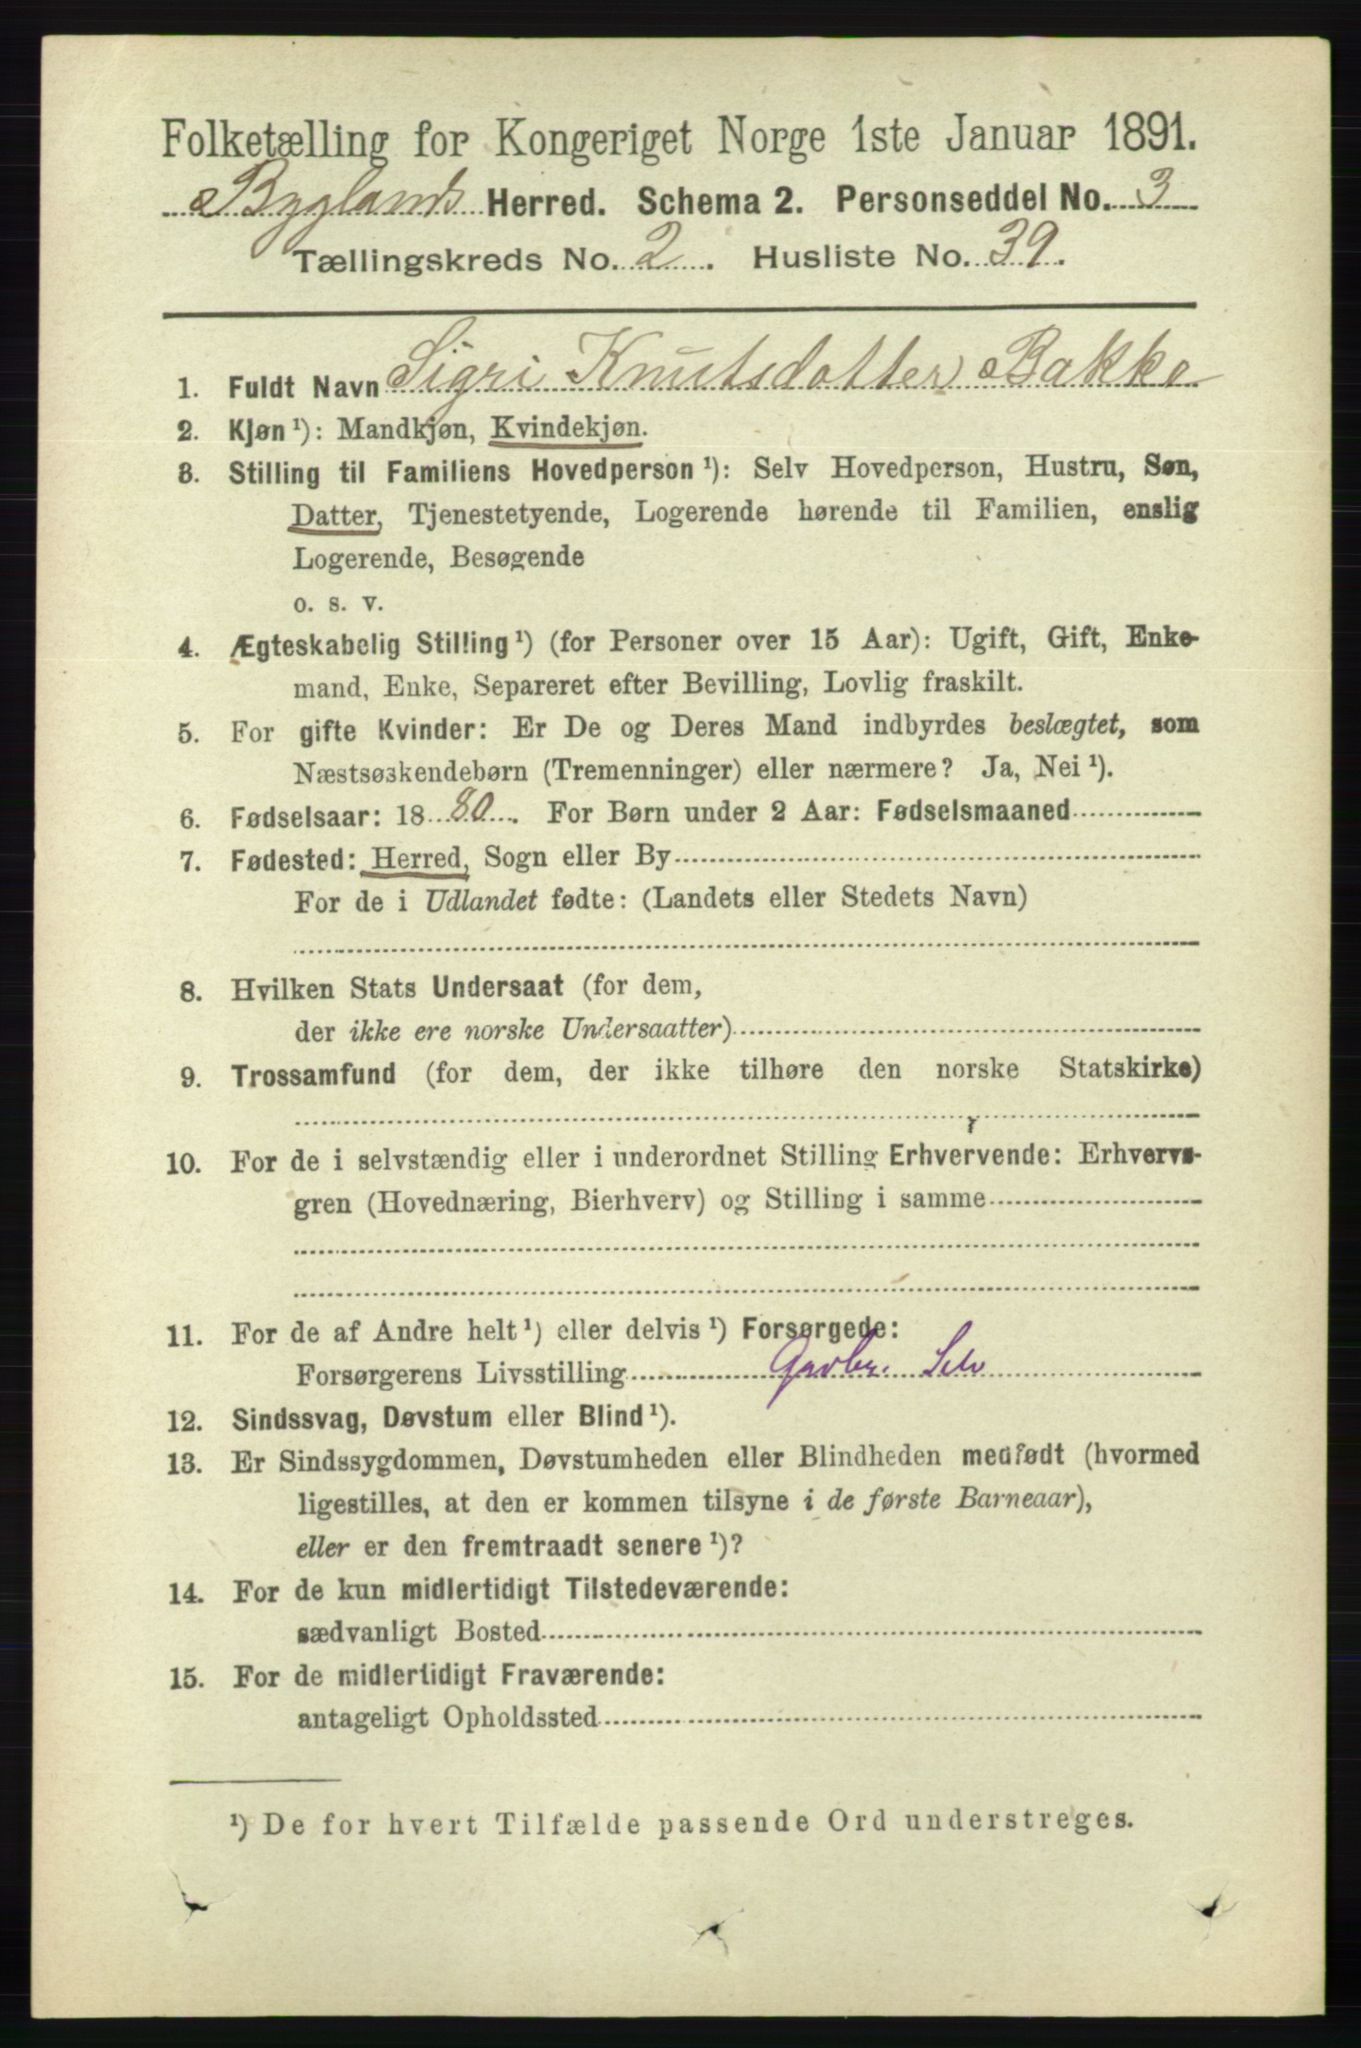 Folketælling for Kongeriget Norge 1ste Januar 1891.
Byglands Herred. Schema 2. Personseddel No. 3
Tællingskreds No. 2. Husliste No. 39.
1. Fuldt Navn Sigri Knutsdatter Bakke
2. Kjøn¹): Mandkjøn, Kvindekjøn.
3. Stilling til Familiens Hovedperson¹): Selv Hovedperson, Hustru, Søn,
Datter, Tjenestetyende, Logerende hørende til Familien, enslig
Logerende, Besøgende
o. s. v.
4. Ægteskabelig Stilling¹) (for Personer over 15 Aar): Ugift, Gift, Enke-
mand, Enke, Separeret efter Bevilling, Lovlig fraskilt.
5. For gifte Kvinder: Er De og Deres Mand indbyrdes beslægtet, som
Næstsøskendebørn (Tremenninger) eller nærmere? Ja, Nei¹).
6. Fødselsaar: 1880. For Børn under 2 Aar: Fødselsmaaned
7. Fødested: Herred, Sogn eller By
For de i Udlandet fødte: (Landets eller Stedets Navn)
8. Hvilken Stats Undersaat (for dem,
der ikke ere norske Undersaatter)
9. Trossamfund (for dem, der ikke tilhøre den norske Statskirke)
10. For de i selvstændig eller i underordnet Stilling Erhvervende: Erhvervs-
gren (Hovednæring, Bierhverv) og Stilling i samme
11. For de af Andre helt¹) eller delvis¹) Forsørgede:
Forsørgerens Livsstilling Gaarbr. Selv
12. Sindssvag, Døvstum eller Blind¹).
13. Er Sindssygdommen, Døvstumheden eller Blindheden medfødt (hvormed
ligestilles, at den er kommen tilsyne i de første Barneaar),
eller er den fremtraadt senere¹)?
14. For de kun midlertidigt Tilstedeværende:
sædvanligt Bosted
15. For de midlertidigt Fraværende:
antageligt Opholdssted
¹) De for hvert Tilfælde passende Ord understreges.